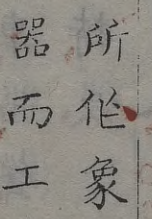 所作象
器而工